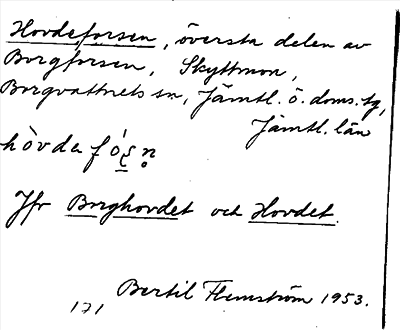 Hovdeforsen, översta delen av
Borgforsen, Skyttmon,
Borgvattnets sn, Jämtl. ö. doms. tg,
Jämtl. län
hòvda fó
Jfr Borghovdet och Hovdet.
Bertil Flemström 1953.
171